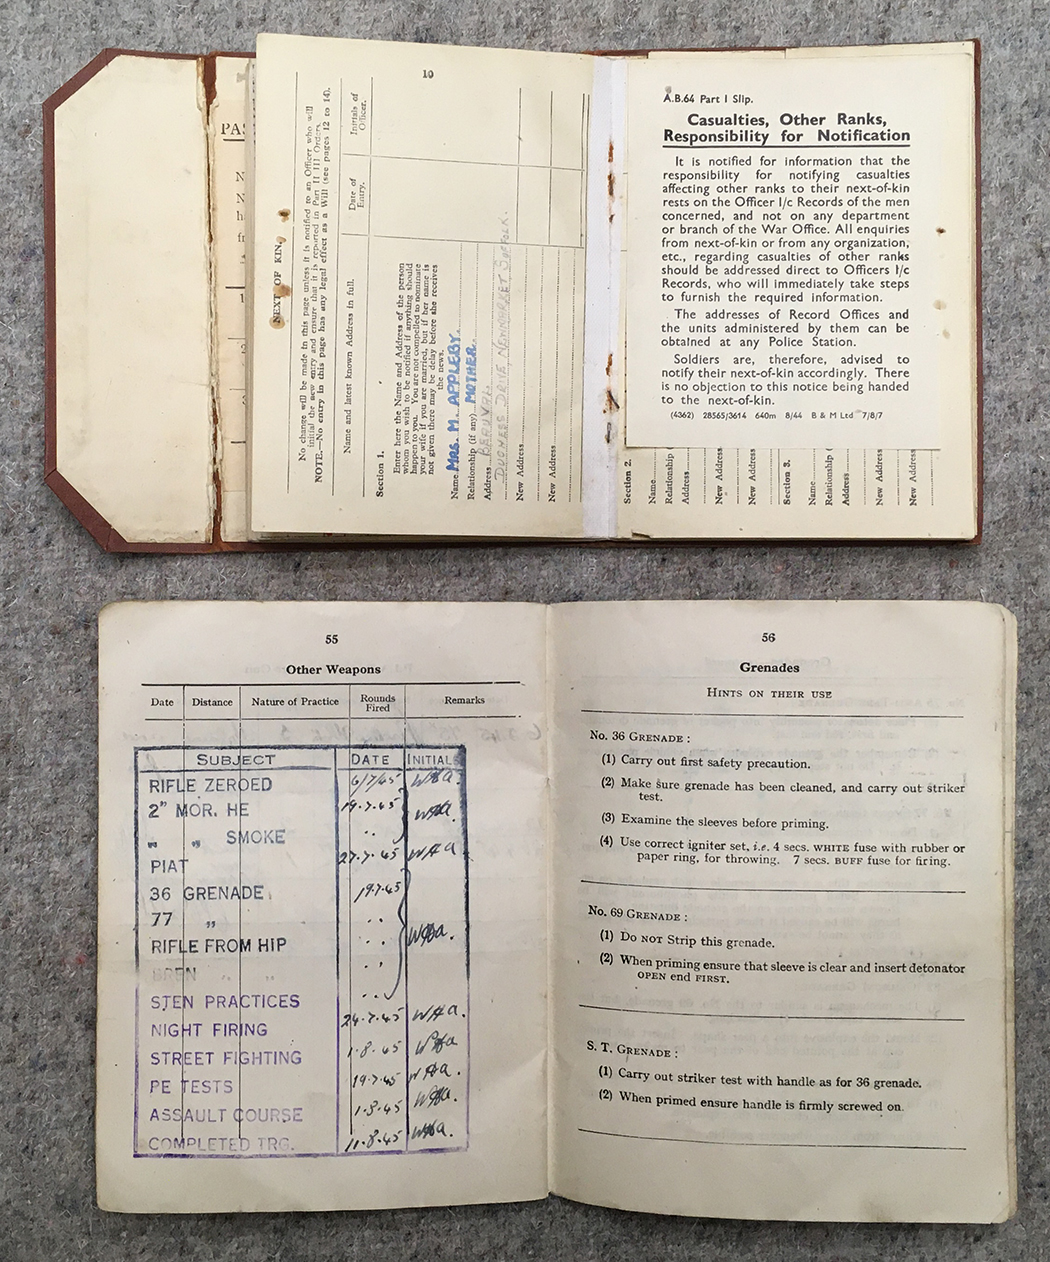 PAS
10
NEXT OF KIN.
No change will be made in this page unless it is notified to an Officer who will
initial the new entry and ensure that it is reported in Part II III Orders.
NOTE.—No entry in this page has any legal effect as a Will (see pages 12 to 14).
Name and latest known Address in full.
Date of
Entry.
Initials of
Officer.
Section 1.
Enter here the Name and Address of the person
whom you wish to be notified if anything should
happen to you. You are not compelled to nominate
your wife if you are married, but if her name is
not given there may be delay before she receives
the news.
Name MRS. M. APPLEBY.
Relationship (if any) MOTHER.
Address
DUCHESS DRIVE NEWMARKET SUFFOLK.
New Address
New Address
A.B.64 Part I Slip.
Casualties, Other Ranks,
Responsibility for Notification
It is notified for information that the
responsibility for notifying casualties
affecting other ranks to their next-of-kin
rests on the Officer I/c Records of the men
concerned, and not on any department
or branch of the War Office. All enquiries
from next-of-kin or from any organization,
etc., regarding casualties of other ranks
should be addressed direct to Officers I/c
Records, who will immediately take steps
to furnish the required information.
The addresses of Record Offices and
the units administered by them can be
obtained at any Police Station.
Soldiers are, therefore, advised to
notify their next-of-kin accordingly. There
is no objection to this notice being handed
to the next-of-kin.
(4362) 28565/3614 640m 8/44 B & M Ltd 7/8/7
Section 2.
Name
Relationship
Address
New Address
New Address
Section 3.
Name
Relationship (
Address
New Address
New Address
55
Other Weapons
Date Distance Nature of Practice Rounds
Fired Remarks
SUBJECT DATE INITIAL
RIFLE ZEROED 6/7/45 WHa.
2" MOR. HE 19.7.45 WHa.
" " SMOKE ..
PIAT 27.7.45 WHa
36 GRENADE. 19.7.45
77 " ..
RIFLE FROM HIP .. WHa.
BREN " " ..
STEN PRACTICES ..
NIGHT FIRING 24.7.45 WHa.
STREET FIGHTING 1.8.45 WHa
PE TESTS 19.7.45 WHa.
ASSAULT COURSE 1.8.45 WHa.
COMPLETED TRG. 11.8.45 WHa.
56
Grenades
HINTS ON THEIR USE
No. 36 GRENADE :
(1) Carry out first safety precaution.
(2) Make sure grenade has been cleaned, and carry out striker
test.
(3) Examine the sleeves before priming.
(4) Use correct igniter set, i.e. 4 secs. WHITE fuse with rubber or
paper ring, for throwing. 7 secs. BUFF fuse for firing.
No. 69 GRENADE :
(1) Do NOT Strip this grenade.
(2) When priming ensure that sleeve is clear and insert detonator
OPEN end FIRST.
S. T. GRENADE :
(1) Carry out striker test with handle as for 36 grenade.
(2) When primed ensure handle is firmly screwed on.